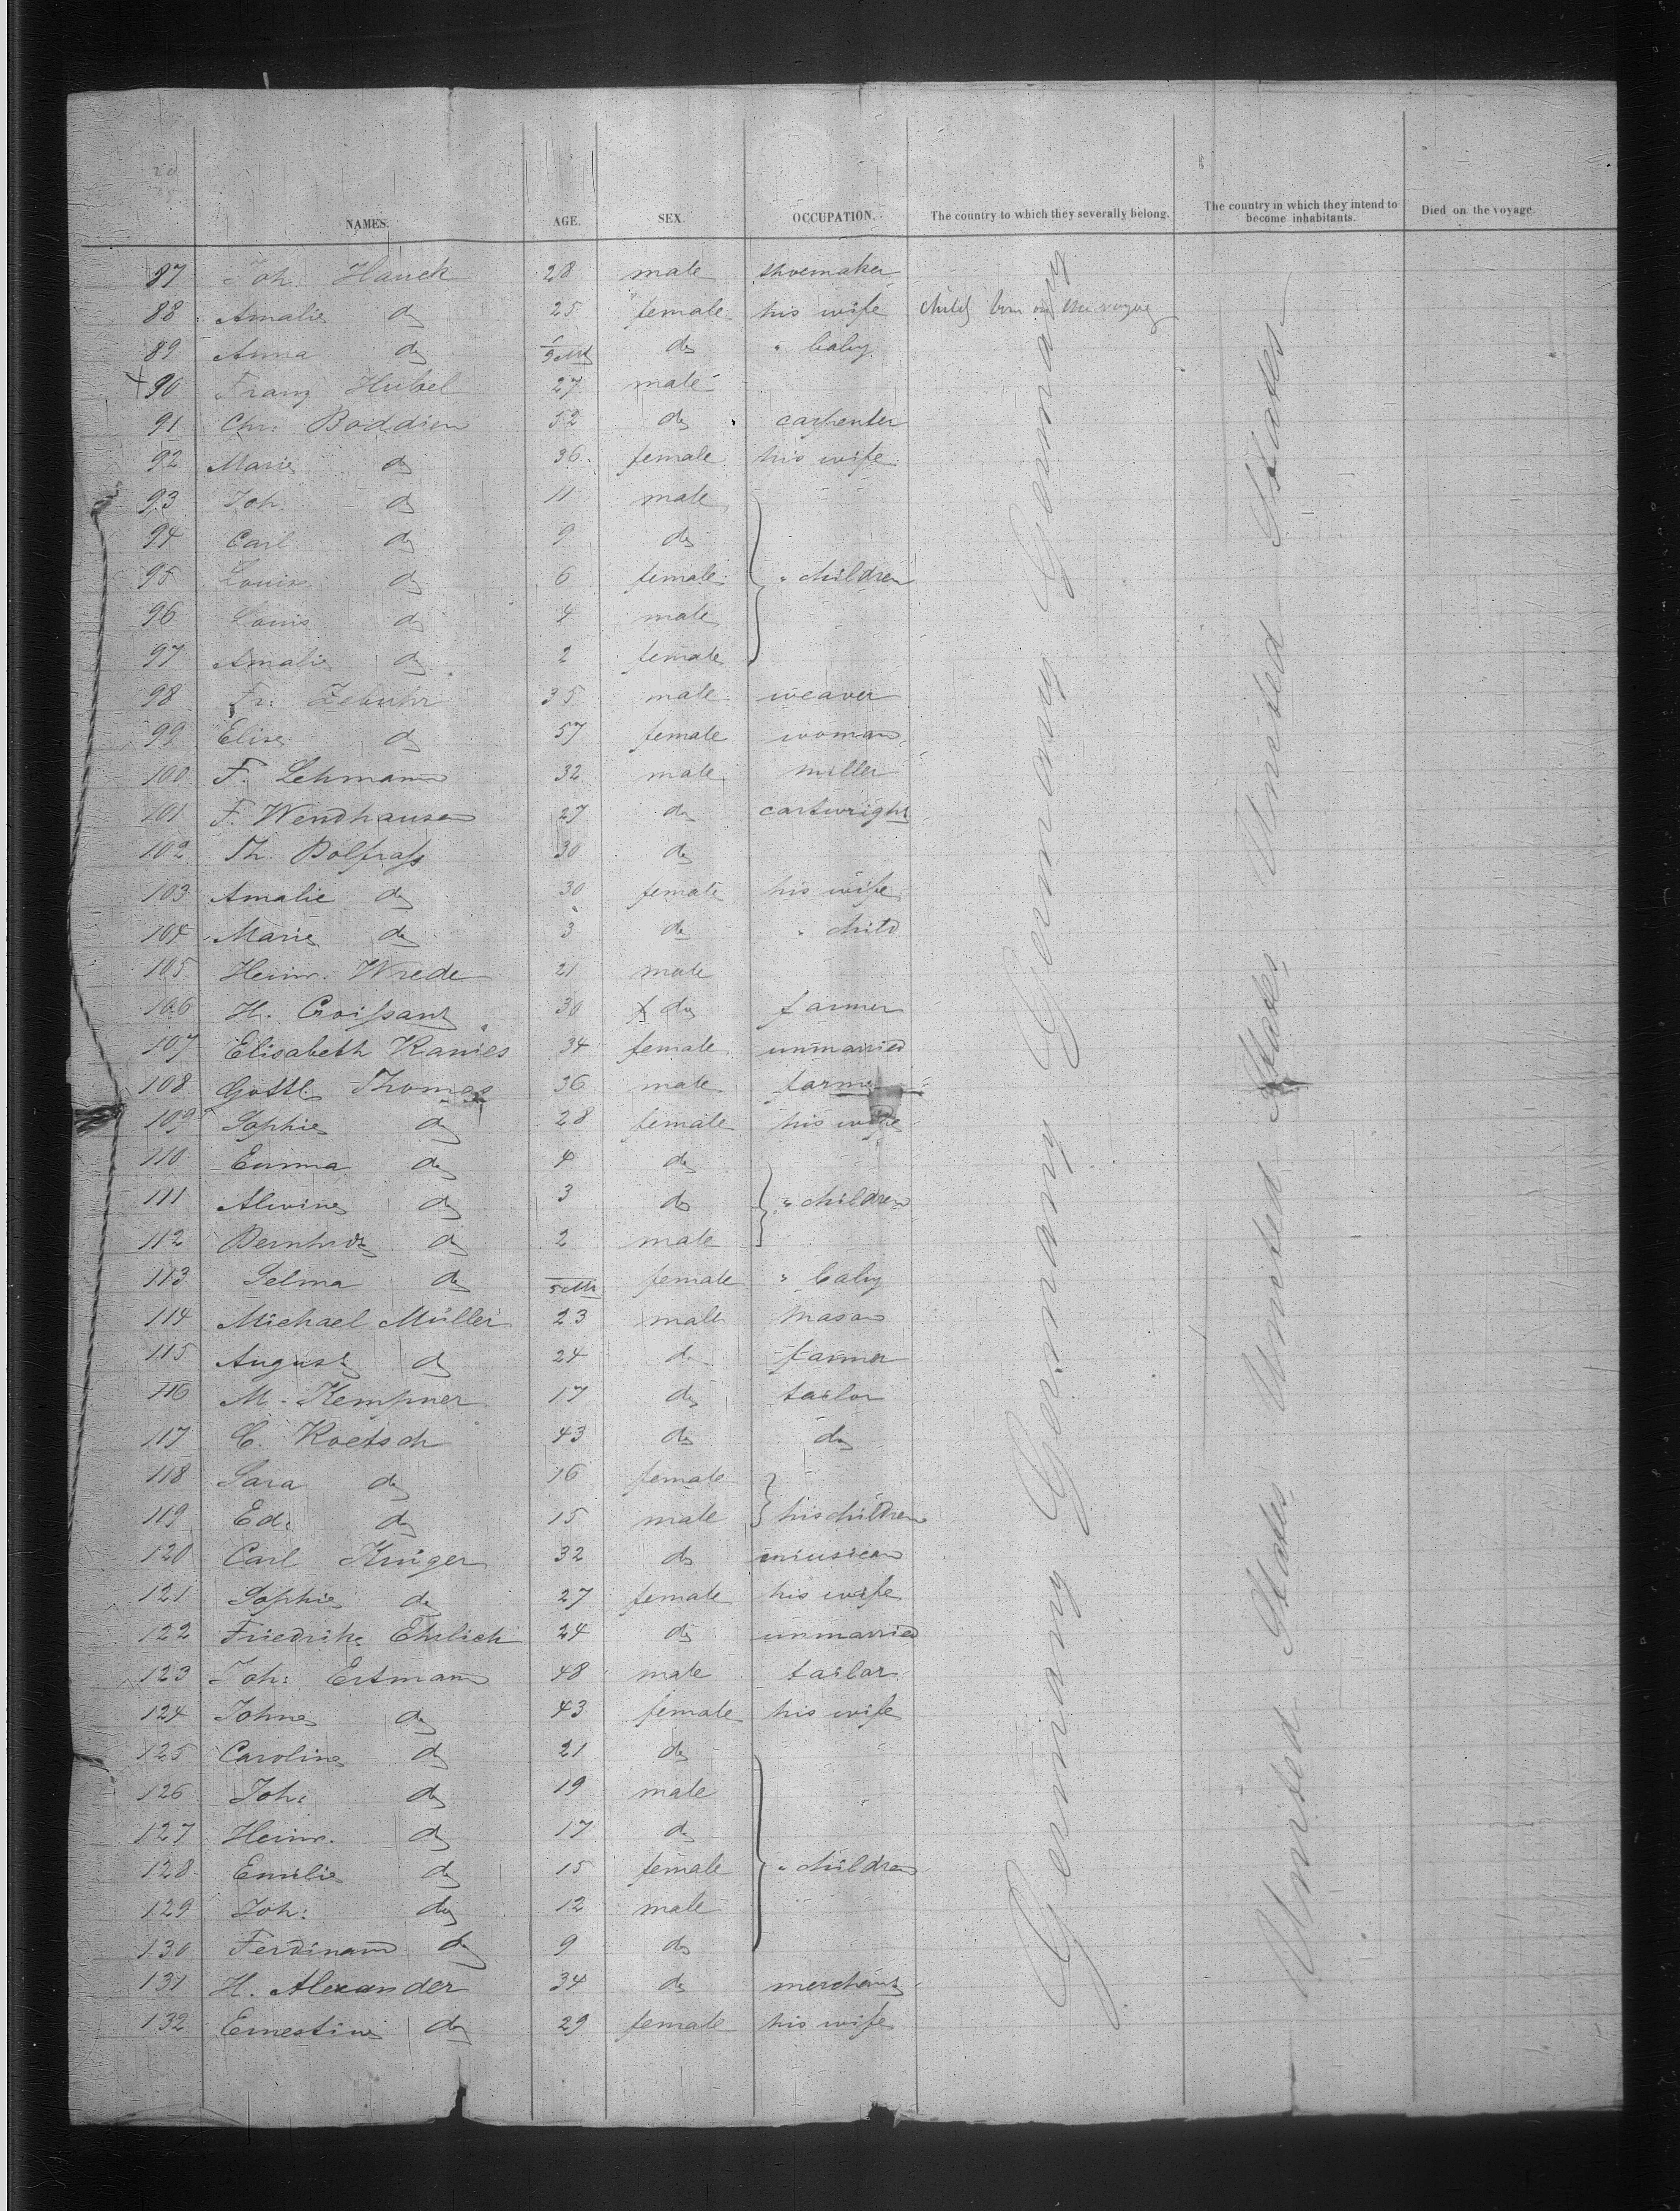 NAMES. AGE. SEX. OCCUPATION. The country to which they severally belong. The country in which they intend to become inhabitants. Died on the voyage.
87 Joh. Hauck 28 male shoemaker
88 Amalie do 25 female his wife child born on the voyage
89 Anna do 9 Mt do " baby
90 Franz Hubel 27 male
91 Chr: Boddien 52 do carpenter
92 Marie do 36 female his wife
93 Joh. do 11 male
94 Carl do 9 do
95 Louise do 6 female " children
96 Louis do 4 male
97 Amalie do 2 female
98 Fr: Zebuhr 35 male weaver
99 Elise do 57 female woman
100 F. Lehmann 32 male miller
101 F. Wendhausen 27 do cartwright
102 Th. Bolfrass 30 do
103 Amalie do 30 female his wife
104 Marie do 3 do " child
105 Heinr. Wrede 21 male
106 H. Croissant 30 do farmer
107 Elisabeth Kanies 34 female unmarried
108 Gottl. Thomas 36 male farmer
109 Sophie do 28 female his wife
110 Emma do 4 do
111 Alwine do 3 do " children
112 Bernhd do 2 male
113 Selma do 5 Mt female " baby
114 Michael Müller 23 male mason
115 August do 24 do farmer
116 M. Kempner 17 do tailor
117 C. Koetsch 43 do do
118 Sara do 16 female
119 Ed: do 15 male his children
120 Carl Krüger 32 do musician
121 Sophie do 27 female his wife
122 Friedrike Ehrlich 24 do unmarried
123 Joh: Ertmann 48 male tailor
124 Johne do 43 female his wife
125 Caroline do 21 do
126 Joh: do 19 male
127 Heinr. do 17 do
128 Emilie do 15 female " children
129 Joh: do 12 male
130 Ferdinand do 9 do
131 H. Alexander 34 do merchant
132 Ernestine do 29 female his wife
Germany Germany Germany Germany Germany
United States United States United States